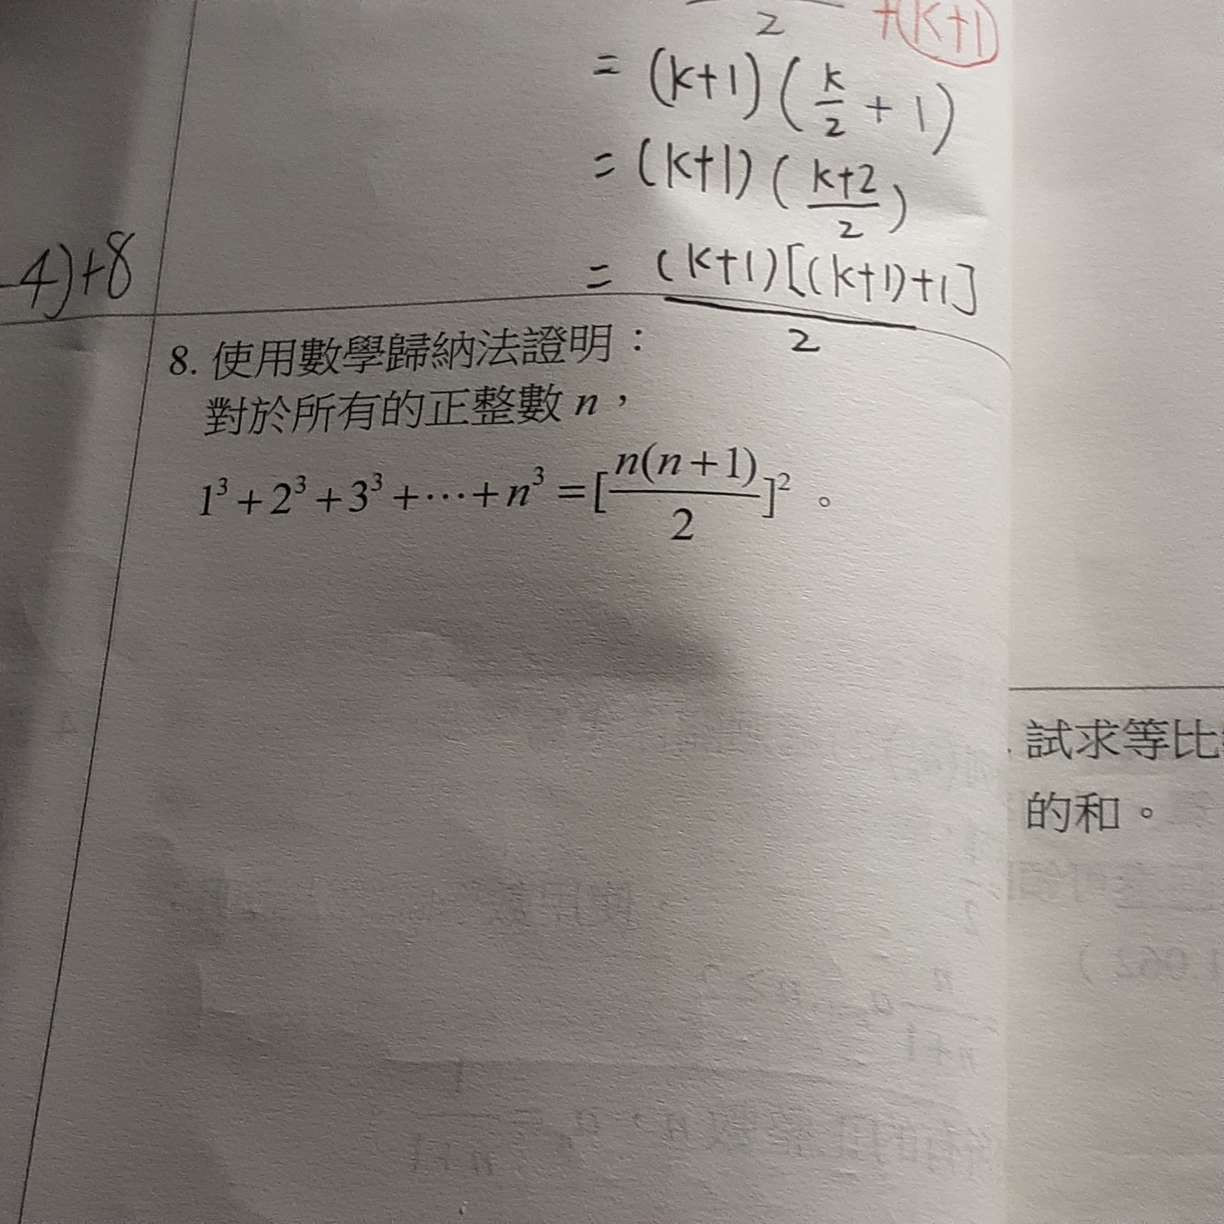 2 +(k+1)
= (k+1)(k/2 + 1)
= (k+1)(k+2/2)
4)+8
= (k+1)[(k+1)+1]/2
8. 使用數學歸納法證明：
對於所有的正整數 n，
1³+2³+3³+⋯+n³=[n(n+1)/2]²。
試求等比
的和。